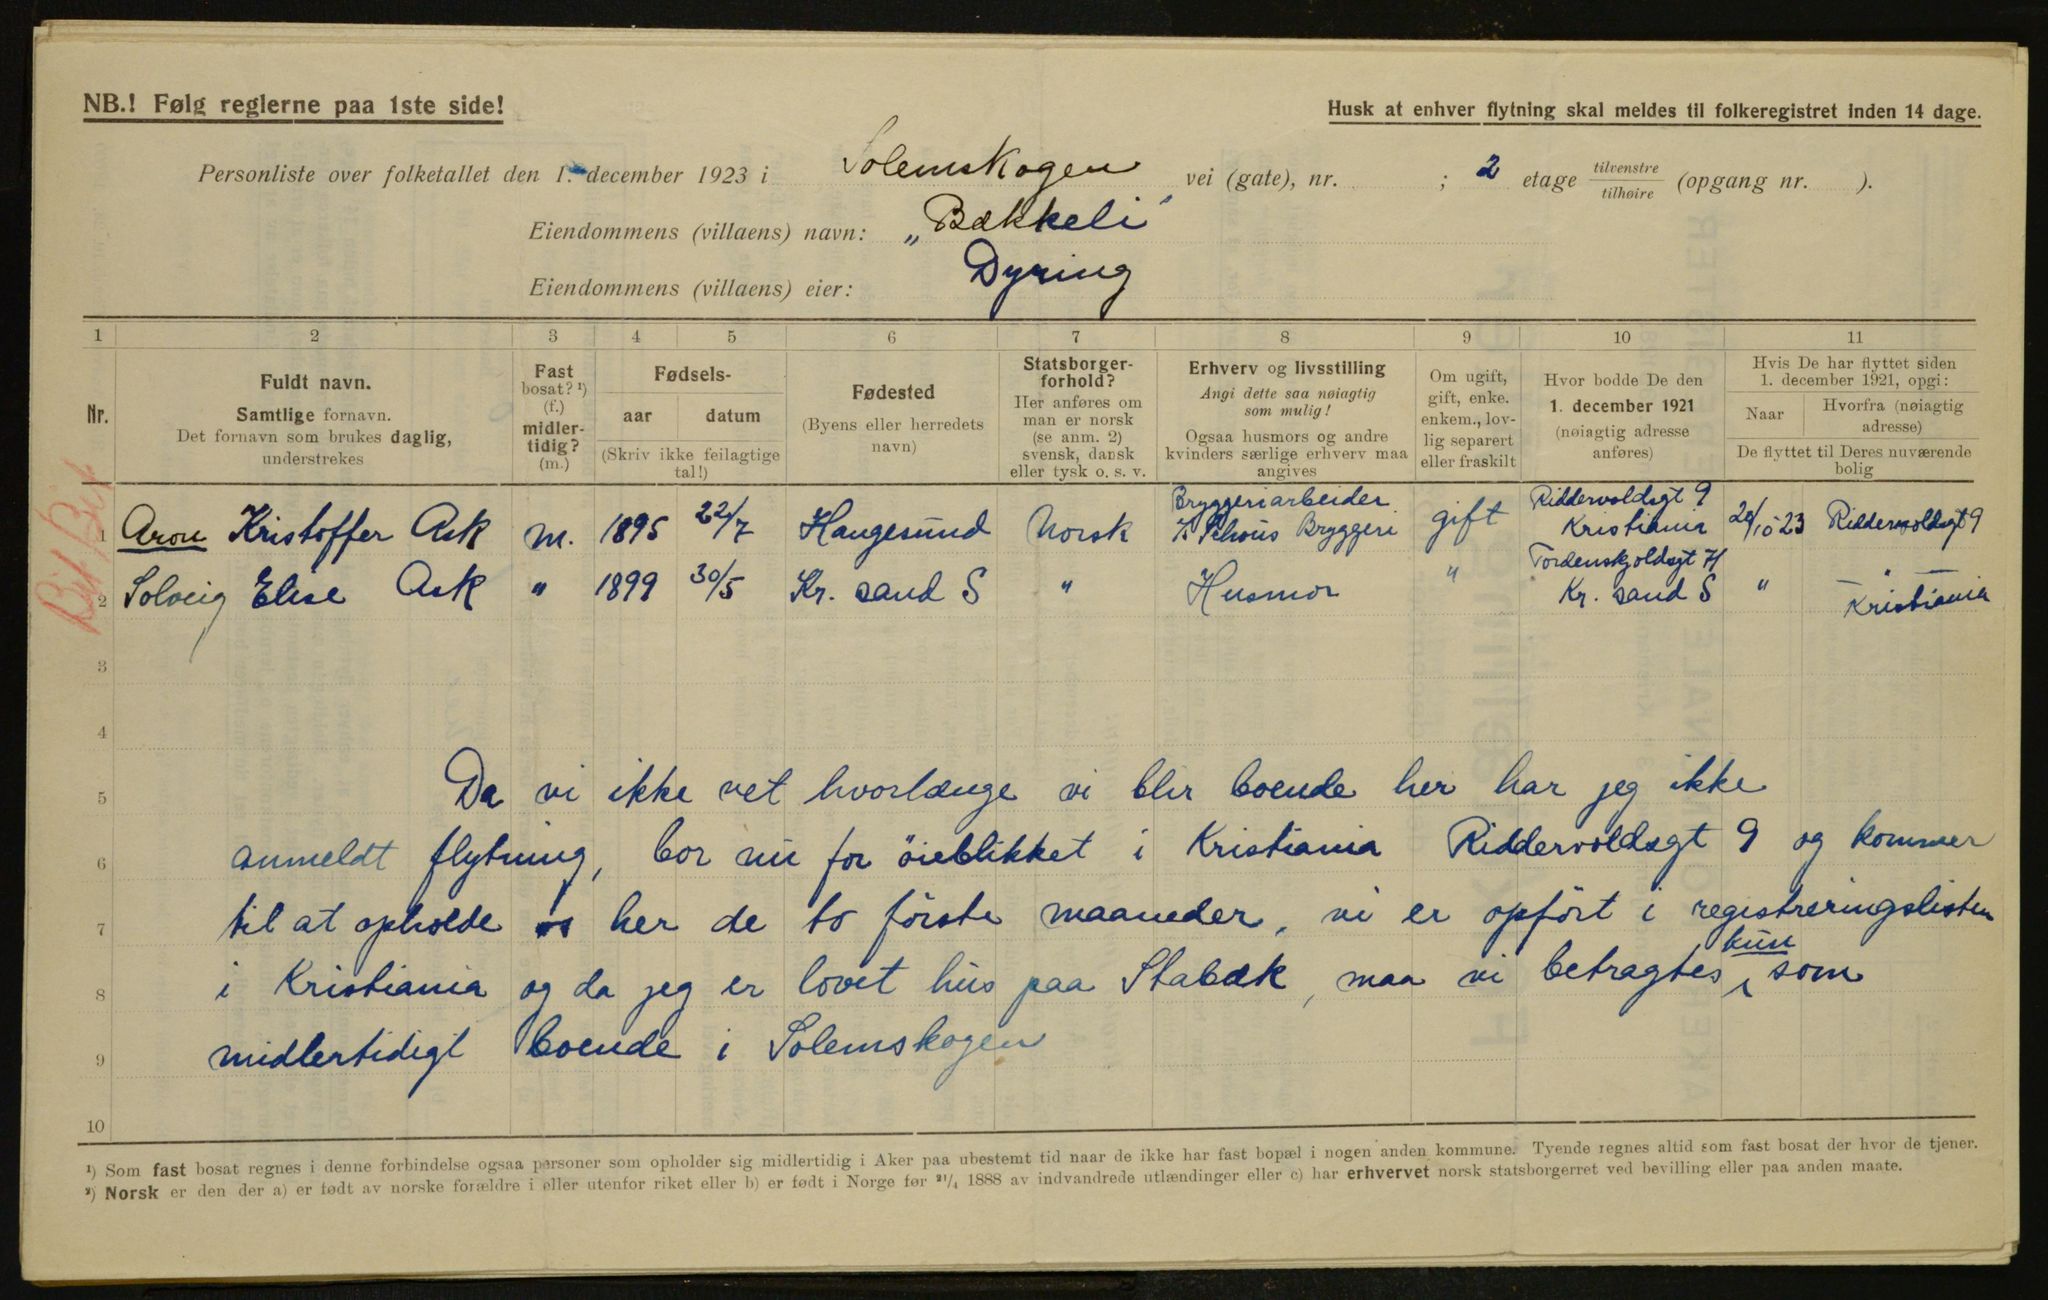 NB.! Følg reglerne paa 1ste side!
Husk at enhver flytning skal meldes til folkeregistret inden 14 dage.
Personliste over folketallet den 1. december 1923 i Solemskogen vei (gate), nr. ; 2 etage tilvenstre tilhøire (opgang nr. ).
Eiendommens (villaens) navn: „Bækkeli"
Eiendommens (villaens) eier: Dyring
1 2 3 4 5 6 7 8 9 10 11
Nr.
Fuldt navn.
Samtlige fornavn.
Det fornavn som brukes daglig,
understrekes
Fast
bosat? ¹)
(f.)
midler-
tidig?
(m.)
Fødsels-
aar datum
(Skriv ikke feilagtige
tal!)
Fødested
(Byens eller herredets
navn)
Statsborger-
forhold?
Her anføres om
man er norsk
(se anm. 2)
svensk, dansk
eller tysk o. s. v.
Erhverv og livsstilling
Angi dette saa nøiagtig
som mulig!
Ogsaa husmors og andre
kvinders særlige erhverv maa
angives
Om ugift,
gift, enke.
enkem., lov-
lig separert
eller fraskilt
Hvor bodde De den
1. december 1921
(nøiagtig adresse
anføres)
Hvis De har flyttet siden
1. december 1921, opgi:
Naar
Hvorfra (nøiagtig
adresse)
De flyttet til Deres nuværende
bolig
1 Aron Kristoffer Ask m. 1895 22/7 Haugesund Norsk Bryggeriarbeider Schous Bryggeri gift Riddervoldsgt 9 Kristiania 20/10 23 Riddervoldsgt 9
2 Solveig Elise Ask " 1899 30/5 Kr. sand S " Husmor " Tordenskjoldsgt Kr. sand S " " Kristiania
3
4
5 Da vi ikke vet hvorlænge vi blir boende her har jeg ikke
6 anmeldt flytning, bor nu for öieblikket i Kristiania Riddervoldsgt 9 og kommer
7 til at opholde os her de to förste maaneder, vi er opfört i registreringslisten
8 i Kristiania og da jeg er lovet hus paa Stabæk, maa vi betragtes kun som
9 midlertidigt boende i Solemskogen
10
¹) Som fast bosat regnes i denne forbindelse ogsaa personer som opholder sig midlertidig i Aker paa ubestemt tid naar de ikke har fast bopæl i nogen anden kommune. Tyende regnes altid som fast bosat der hvor de tjener.
²) Norsk er den der a) er født av norske forældre i eller utenfor riket eller b) er født i Norge før ²¹/₄ 1888 av indvandrede utlændinger eller c) har erhvervet norsk statsborgerret ved bevilling eller paa anden maate.